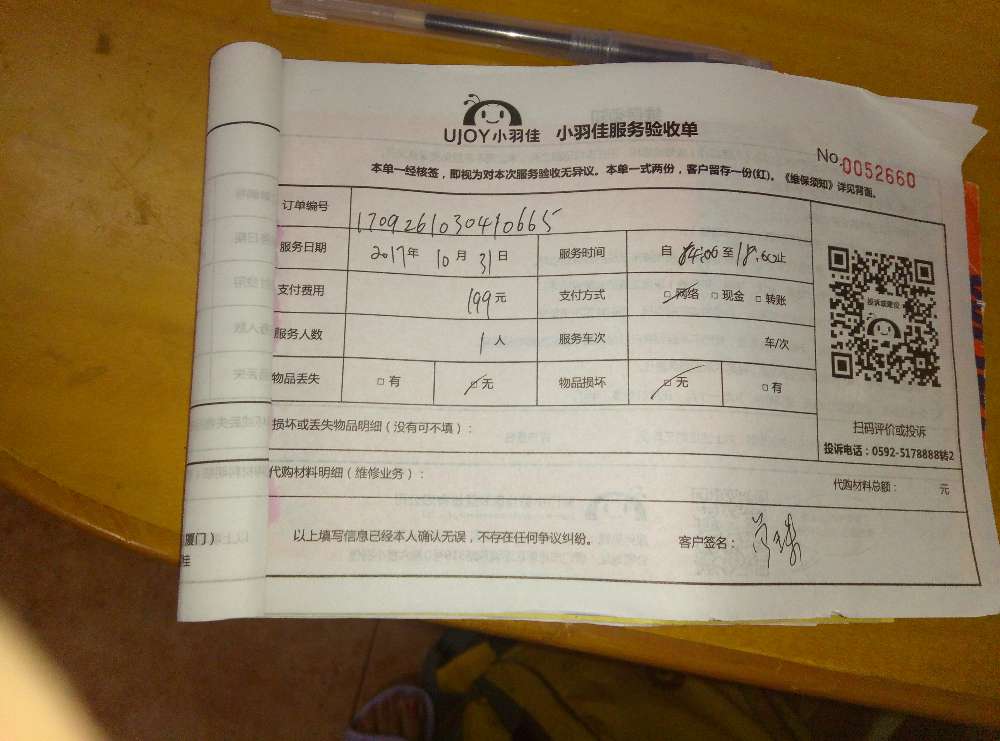 UJOY小羽佳 小羽佳服务验收单
No.0052660
本单一经核签，即视为对本次服务验收无异议。本单一式两份，客户留存一份(红)。《维保须知》详见背面。
订单编号 170926103041 0665
服务日期 2017年 10月 31日 服务时间 自 14:00 至 18:00止
支付费用 199元 支付方式 □网络 □现金 □转账
服务人数 1人 服务车次 车/次
物品丢失 □有 □无 物品损坏 □无 □有
投诉或建议
扫码评价或投诉
投诉电话：0592-5178888转2
损坏或丢失物品明细（没有可不填）：
代购材料明细（维修业务）： 代购材料总额： 元
厦门）
佳
以上填写信息已经本人确认无误，不存在任何争议纠纷。 客户签名：